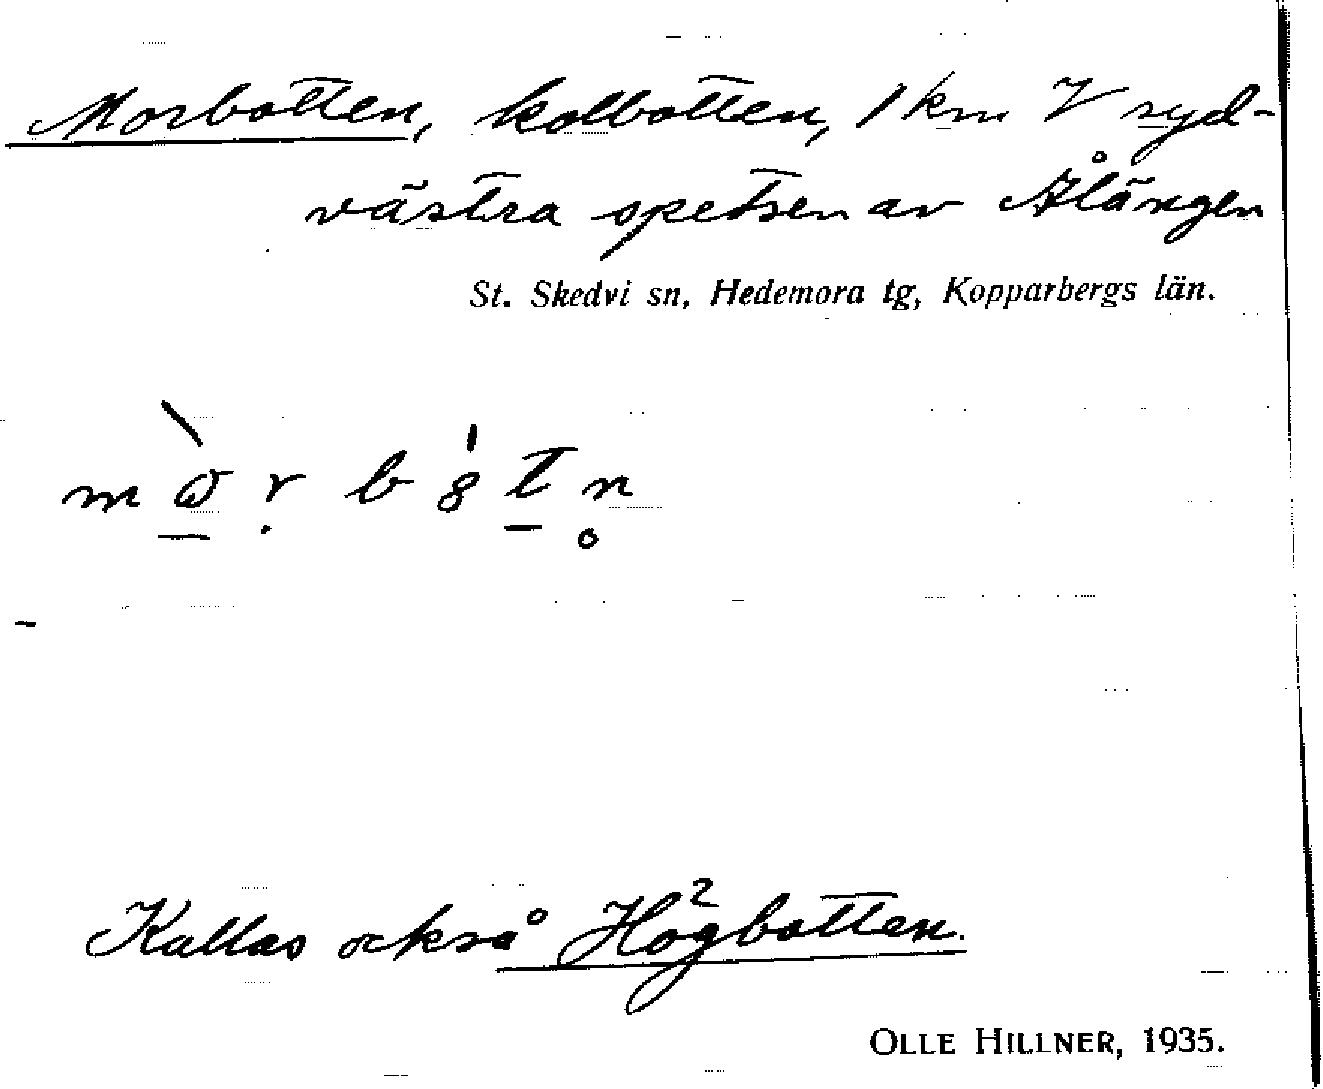 Morbotten, kolbotten, 1 km V syd-
västra spetsen av Ålängen
St. Skedvi sn, Hedemora tg, Kopparbergs län.
Kallas också Högbotten.
OLLE HILLNER, 1935.